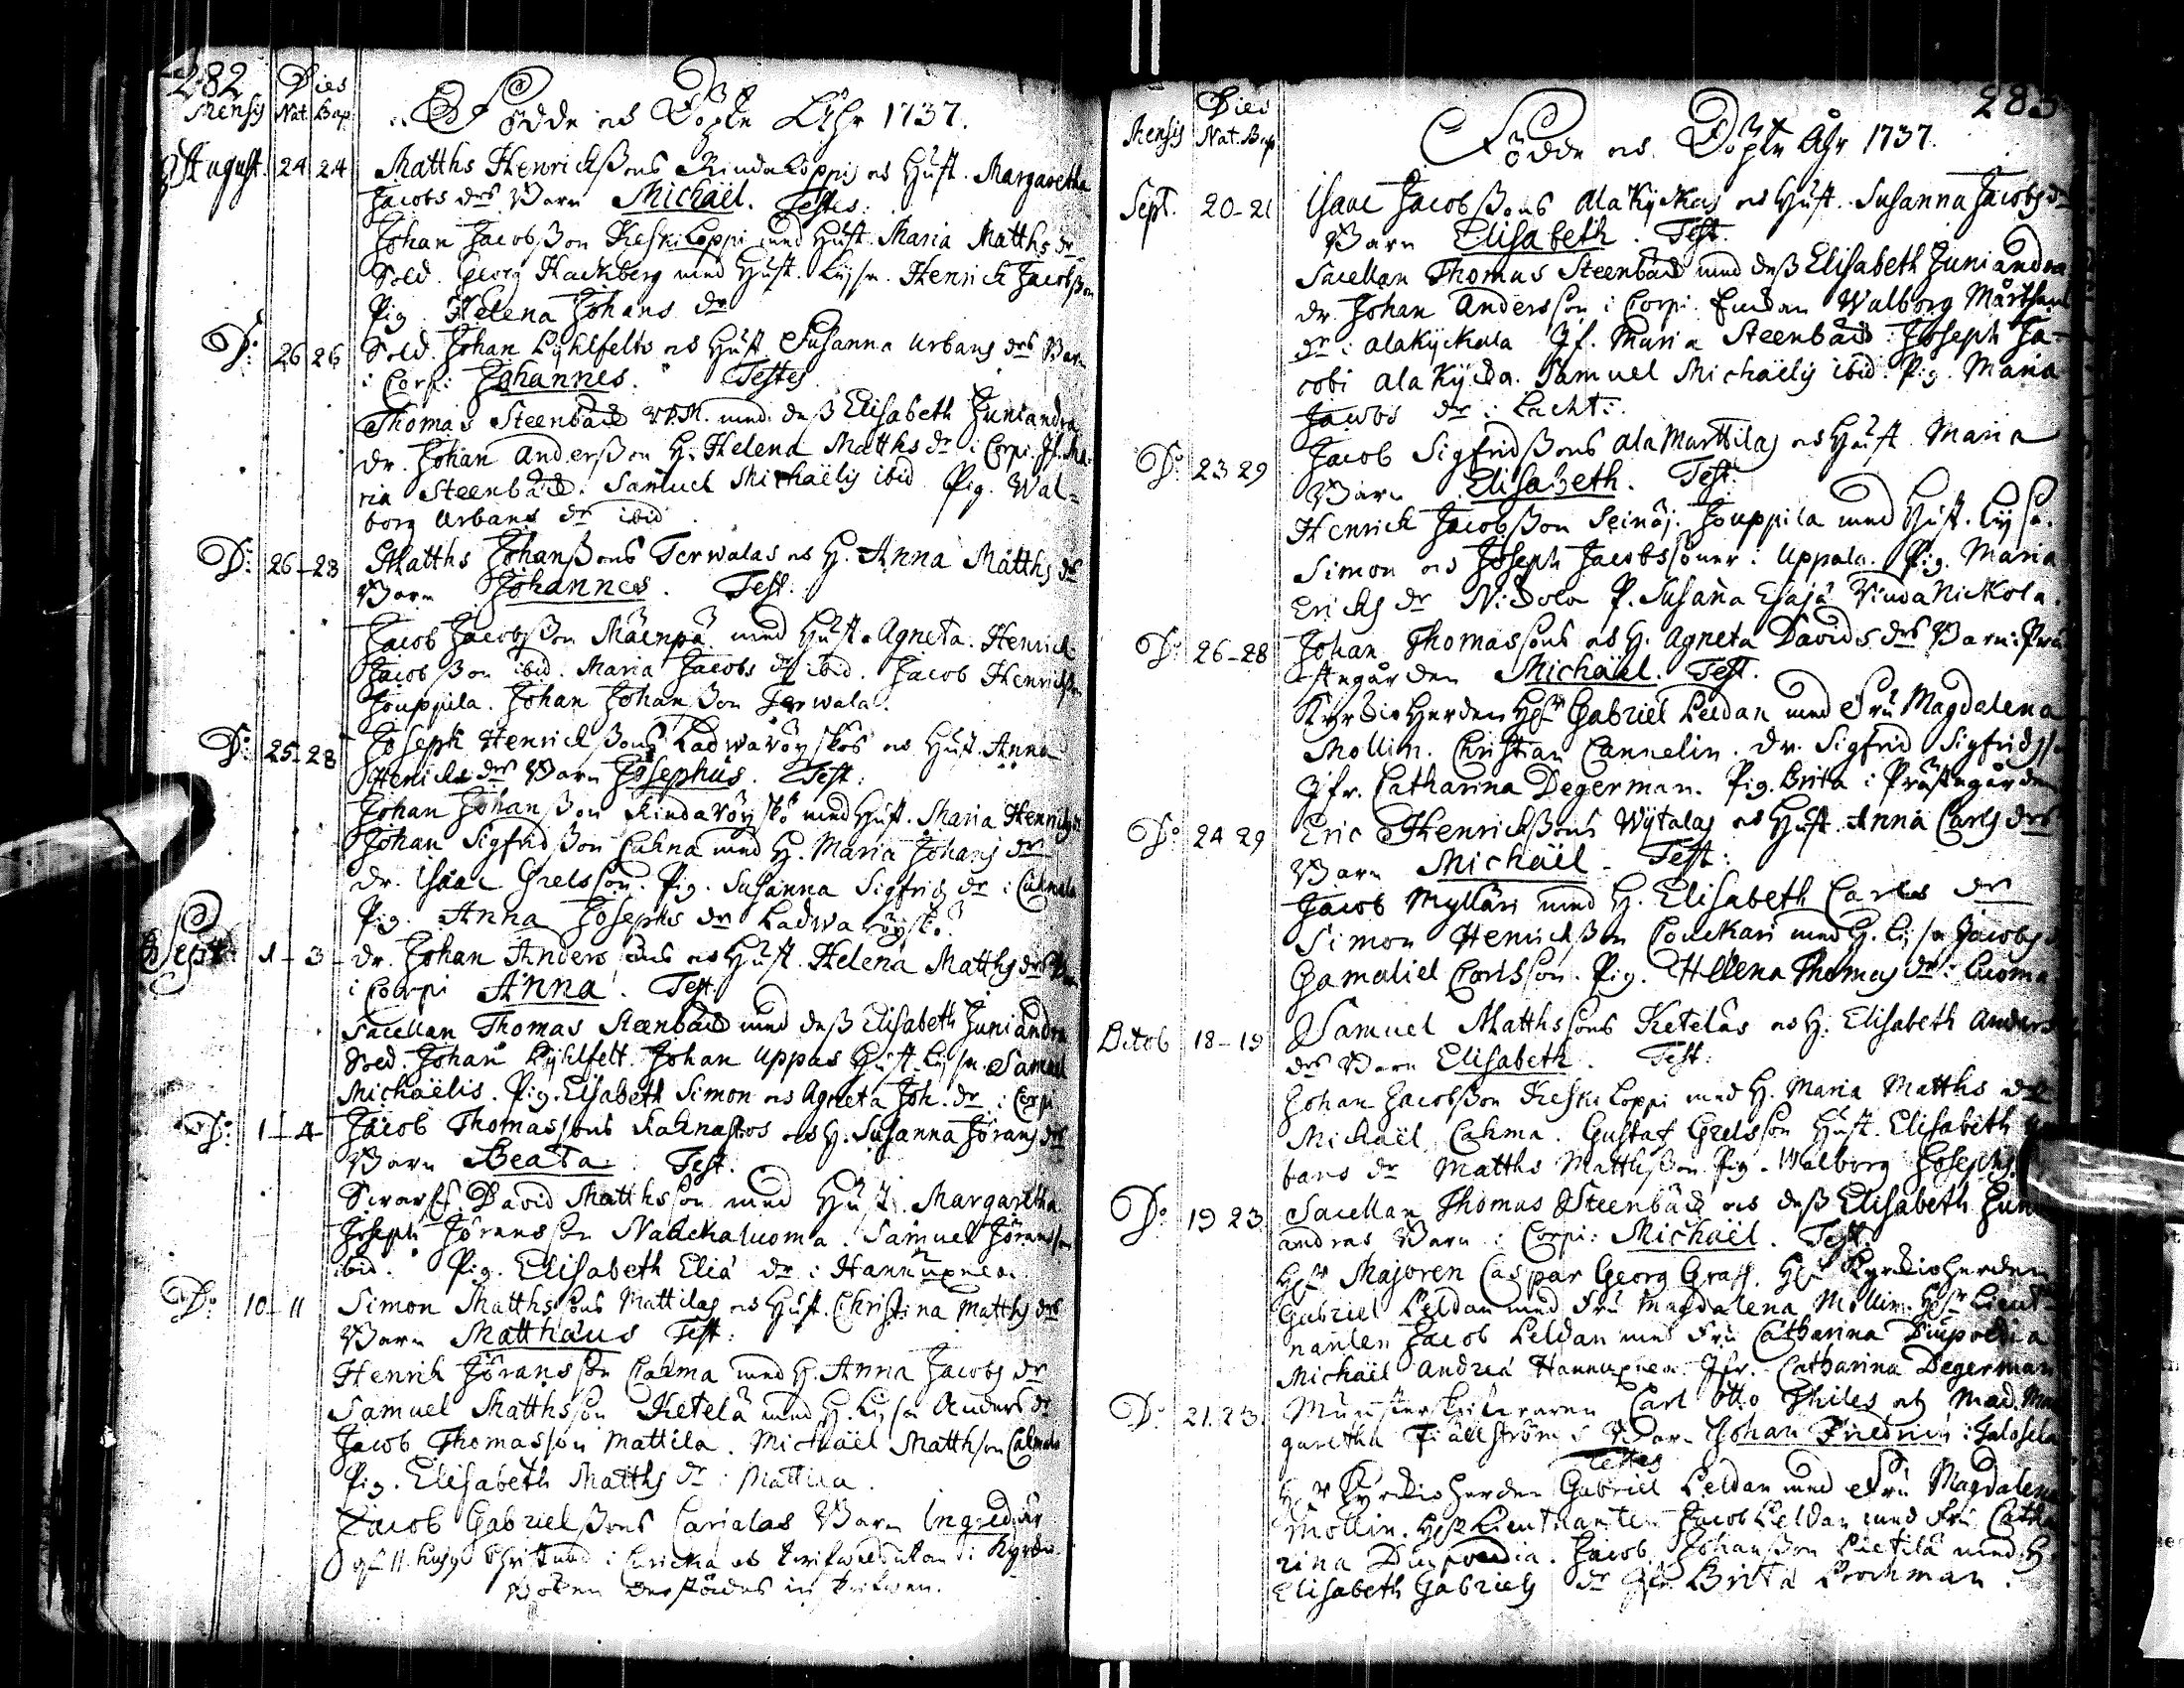 282 Dies
Mensis Nat. Bap. Födde och Döpte Åhr 1737.
August. 24 24 Matths Henrichßons Rindaloppis och Hust. Margaretha
Jacobs drs Barn Michaël. Testes:
Johan Jacobßon Keskiloppi med Hust. Maria Matths dr
Sold. Georg Hackberg med Hust. Lijsa. Henrich Jacobßon
Pig. Helena Johans dr
Do: 26 26 Sold. Johan Lyhlfelts och Hust Susanna Urbans drs Barn
i Corpi: Johannes. Testes
Thomas Steenbäck med deß Elisabeth Juniandra
dr. Johan Anderßon H. Helena Matths dr i Corpi. Jf. Ma-
ria Steenbäck. Samuel Michaëlis ibid. Pig. Wal=
borg Urbans dr ibid
Do: 26-23 Matths Johanßons Terwalas och H. Anna Matths drs
Barn Johannes. Test.
Jacob Jacobßon Mäenpä med Hust. Agneta. Henrich
Jacobßon ibid. Maria Jacobs dr ibid. Jacob Henrichßon
Jouppila. Johan Johanßon Terwala.
Do: 25-28 Joseph Henrichßons Ladwaröyskös och Hust. Anna
Henichs drs Barn Josephus. Test:
Johan Johanßon Rindaröyskö med Hust. Maria Henrichs dr
Johan Sigfridßon Cahna med H. Maria Johans dr
dr. Isaac Grelsson. Pig. Susanna Sigfrids dr i
Pig. Anna Josephs dr Ladwaröyskö
Sept: 1-3 dr. Johan Anderssons och Hust. Helena Matths drs Barn
i Corpi Anna. Test.
Sacellan Thomas Steenbäck med deß Elisabeth Juniandra
Sold. Johan Lyhlfelt. Johan Uppas Hust. Lijsa. Samuel
Michaëlis. Pig. Elsabeth Simon och Agneta Joh. dr i Corpi
Do: 1-4 Jacob Thomassons och H. Susanna Jörans drs
Barn Beata. Test.
David Matthsson med Hust. Margaretha
Joseph Jöransson Nahckaluoma. Samuel Jöransson
ibid. Pig. Elisabeth Eliä dr i Hannuxela.
Do: 10-11 Simon Matthssons Mattilas och Hust. Christina Matths drs
Barn Matthäus Test:
Henrik Jöransson Cahma med H. Anna Jacobs dr
Samuel Matthsson Ketelä med H. Lijsa Anders dr
Jacob Thomasson Mattila. Michaël Matthson
Pig. Elisabeth Matths dr i Mattila.
Jacob Gabrielßons Carialas Barn Ingred är
d 11. hujus Christnad i

283
Dies
Mensis Nat. Bap Födde och Döpte Åhr 1737.
Sept. 20-21 Isaac Jacobßons Alakyckas och Hust. Susanna Jacobs dr
Barn Elisabeth. Test.
Sacellan Thomas Steenbäck med deß Elisabeth Juniandra
dr. Johan Andersson i Corpi. Enckan Walborg Mårthens
dr i Alakyckala Jf. Maria Steenbäck. Joseph Ja-
cobi Alakycka. Samuel Michaëlis ibid. Pig. Maria
Jacobs dr i Lachti.
Do: 23 29 Jacob Sigfridßons Alamarttilas och Hust. Maria
Barn Elisabeth. Test.
Henrich Jacobßon Seinäj. Jouppila med Hust. Lijsa.
Simon och Joseph Jacobssöner i Uppala. Pig. Maria
Erichs dr Nickola P. Susanna Esajä
Do: 26-28 Johan Thomassons och H. Agneta Davids drs Barn i Prä-
stegården Michaël. Test.
Kyrckioherden Hr Gabriel Peldan med Fru Magdalena
Mollin. Christian Cannelin. dr. Sigfrid Sigfridss.
Jfr. Catharina Degerman. Pig. Brita i Prästegården
Do: 24 29 Eric Henrichßons Wytalas och Hust. Anna Carls drs
Barn Michaël. Test:
Jacob Mylläri med H. Elisabeth Carls dr
Simon Henrichßon Couckari med H. Lijsa Jacobs dr
Gamaliel Carlsson. Pig. Helena Thomas dr i Luoma
Octob 18-19 Samuel Matthssons Ketelas och H. Elisabeth Anders
drs Barn Elisabeth. Test:
Johan Jacobßon Keskiloppi med H. Maria Matths dr
Michaël Cahma. Gustaf Grelsson Hust. Elisabeth Ur
bans dr Matths Matthßon. Pig. Walborg Josephs
Do: 19 23 Sacellan Thomas Steenbäck och deß Elisabeth Juni
andras Barn i Corpi: Michaël. Test.
Hr Majoren Caspar Georg Graff. Hr Kyrckioherden
Gabriel Peldan med Fru Magdalena Mollin. Hr Lieut-
nanten Jacob Peldan med Fru Catharina
Michaël Andreä Hannuxela. Jfr. Catharina Degerman
Do: 21.23. Munsterskrifwaren Carl Otto Thiles och Mad. Mar
garetha Fiällströms Barn Johan Friedrich i Jalosela
Testes
Hr Kyrckioherden Gabriel Peldan med Fru Magdalena
Mollin. Hr Lieutnanten Jacob Peldan med Fru Catha
rina. Jacob Johanßon Pietilä med H
Elisabeth Gabriels dr Jfr. Brita Prochman.